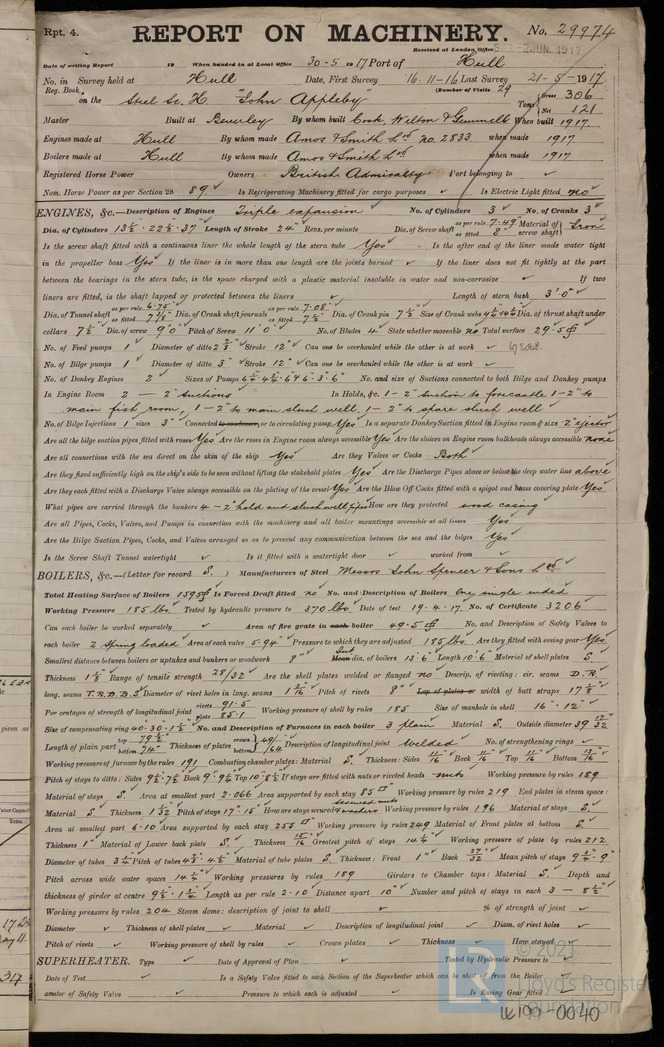 Rpt. 4. REPORT ON MACHINERY. No. 29974
Received at London Office 2 JUN. 1917
Date of writing Report 19 When handed in at Local Office 30-5-1917 Port of Hull
No. in Survey held at Hull Date, First Survey 16-11-16 Last Survey 21-5-1917
Reg. Book. (Number of Visits 29
on the Steel Sc. K "John Appleby" Tons Gross 306 Net 121
Master Built at Beverley By whom built Cook, Welton & Gemmell When built 1917
Engines made at Hull By whom made Amos & Smith Ltd No. 2833 when made 1917
Boilers made at Hull By whom made Amos & Smith Ltd when made 1917
Registered Horse Power Owners British Admiralty Port belonging to
Nom. Horse Power as per Section 28 89 Is Refrigerating Machinery fitted for cargo purposes Is Electric Light fitted no
ENGINES, &c.—Description of Engines Triple expansion No. of Cylinders 3 No. of Cranks 3
Dia. of Cylinders 13½ · 22½ · 37 Length of Stroke 24" Revs. per minute Dia. of Screw shaft as per rule 7.49 as fitted 8" Material of screw shaft Iron
Is the screw shaft fitted with a continuous liner the whole length of the stern tube Yes Is the after end of the liner made water tight
in the propeller boss Yes If the liner is in more than one length are the joints burned If the liner does not fit tightly at the part
between the bearings in the stern tube, is the space charged with a plastic material insoluble in water and non-corrosive If two
liners are fitted, is the shaft lapped or protected between the liners Length of stern bush 3'.0"
Dia. of Tunnel shaft as per rule 6.75 as fitted Dia. of Crank shaft journals as per rule 7.08 as fitted 7½ Dia. of Crank pin 7½ Size of Crank webs Dia. of thrust shaft under
collars 7½ Dia. of screw 9'.0" Pitch of Screw 11'.0" No. of Blades 4 State whether moveable no Total surface 29.5
No. of Feed pumps 1 Diameter of ditto Stroke 12" Can one be overhauled while the other is at work
No. of Bilge pumps 1 Diameter of ditto 3" Stroke 12" Can one be overhauled while the other is at work
No. of Donkey Engines 2 Sizes of Pumps No. and size of Suctions connected to both Bilge and Donkey pumps
In Engine Room 2 - 2" suctions In Holds, &c. 1-2" suction to forecastle 1-2" to
main fish room, 1-2" to main slush well. 1-2" to spare slush well
No. of Bilge Injections 1 sizes 3" Connected to condenser, or to circulating pump Yes Is a separate Donkey Suction fitted in Engine room & size 2" ejector
Are all the bilge suction pipes fitted with roses Yes Are the roses in Engine room always accessible Yes Are the sluices on Engine room bulkheads always accessible none
Are all connections with the sea direct on the skin of the ship Yes Are they Valves or Cocks Both
Are they fixed sufficiently high on the ship's side to be seen without lifting the stokehold plates Yes Are the Discharge Pipes above or below the deep water line above
Are they each fitted with a Discharge Valve always accessible on the plating of the vessel Yes Are the Blow Off Cocks fitted with a spigot and brass covering plate Yes
What pipes are carried through the bunkers 4-2" hold and slush well pipes How are they protected wood casing
Are all Pipes, Cocks, Valves, and Pumps in connection with the machinery and all boiler mountings accessible at all times Yes
Are the Bilge Suction Pipes, Cocks, and Valves arranged so as to prevent any communication between the sea and the bilges Yes
Is the Screw Shaft Tunnel watertight Is it fitted with a watertight door worked from
BOILERS, &c.—(Letter for record S.) Manufacturers of Steel Messrs John Spencer & Sons Ltd
Total Heating Surface of Boilers 1595 Is Forced Draft fitted no No. and Description of Boilers One single ended
Working Pressure 185 lbs. Tested by hydraulic pressure to 370 lbs. Date of test 19.4.17. No. of Certificate 3206
Can each boiler be worked separately Area of fire grate in each boiler 49.5 No. and Description of Safety Valves to
each boiler 2 Spring loaded Area of each valve 5.94 Pressure to which they are adjusted 185 lbs. Are they fitted with easing gear Yes
Smallest distance between boilers or uptakes and bunkers or woodwork 8" Mean dia. of boilers 13'.6" Length 10'.6" Material of shell plates S.
Thickness Range of tensile strength 28/32 Are the shell plates welded or flanged no Descrip. of riveting: cir. seams D.R.
long. seams T.R.D.B.S. Diameter of rivet holes in long. seams Pitch of rivets 8" Lap of plates or width of butt straps
Per centages of strength of longitudinal joint rivets 91.5 plate 85.1 Working pressure of shell by rules 185 Size of manhole in shell 16" · 12"
Size of compensating ring 40 · 30 · 1½ No. and Description of Furnaces in each boiler 3 plain Material S. Outside diameter
Length of plain part top bottom 74" Thickness of plates crown bottom 49/64 Description of longitudinal joint Welded No. of strengthening rings
Working pressure of furnace by the rules 191 Combustion chamber plates: Material S. Thickness: Sides 11/16 Back 11/16 Top 11/16 Bottom
Pitch of stays to ditto: Sides Back Top If stays are fitted with nuts or riveted heads nuts Working pressure by rules 189
Material of stays S. Area at smallest part 2.066 Area supported by each stay 85 Working pressure by rules 219 End plates in steam space:
Material S. Thickness 1 1/32 Pitch of stays 17" · 15" How are stays secured Working pressure by rules 196 Material of stays S.
Area at smallest part 6.10 Area supported by each stay 255 Working pressure by rules 249 Material of Front plates at bottom S.
Thickness 1" Material of Lower back plate S. Thickness 15/16 Greatest pitch of stays 14¼ Working pressure of plate by rules 212
Diameter of tubes 3¼ Pitch of tubes Material of tube plates S. Thickness: Front 1" Back 27/32 Mean pitch of stays
Pitch across wide water spaces 14¼ Working pressures by rules 189 Girders to Chamber tops: Material S. Depth and
thickness of girder at centre Length as per rule 2.10 Distance apart 10" Number and pitch of stays in each 3 - 8½"
Working pressure by rules 204 Steam dome: description of joint to shell % of strength of joint
Diameter Thickness of shell plates Material Description of longitudinal joint Diam. of rivet holes
Pitch of rivets Working pressure of shell by rules Crown plates Thickness How stayed
SUPERHEATER. Type Date of Approval of Plan Tested by Hydraulic Pressure to
Date of Test Is a Safety Valve fitted to each Section of the Superheater which can be shut off from the Boiler
ameter of Safety Valve Pressure to which each is adjusted Is Easing Gear fitted
© 2021
Lloyd's Register
Foundation
LR
0040